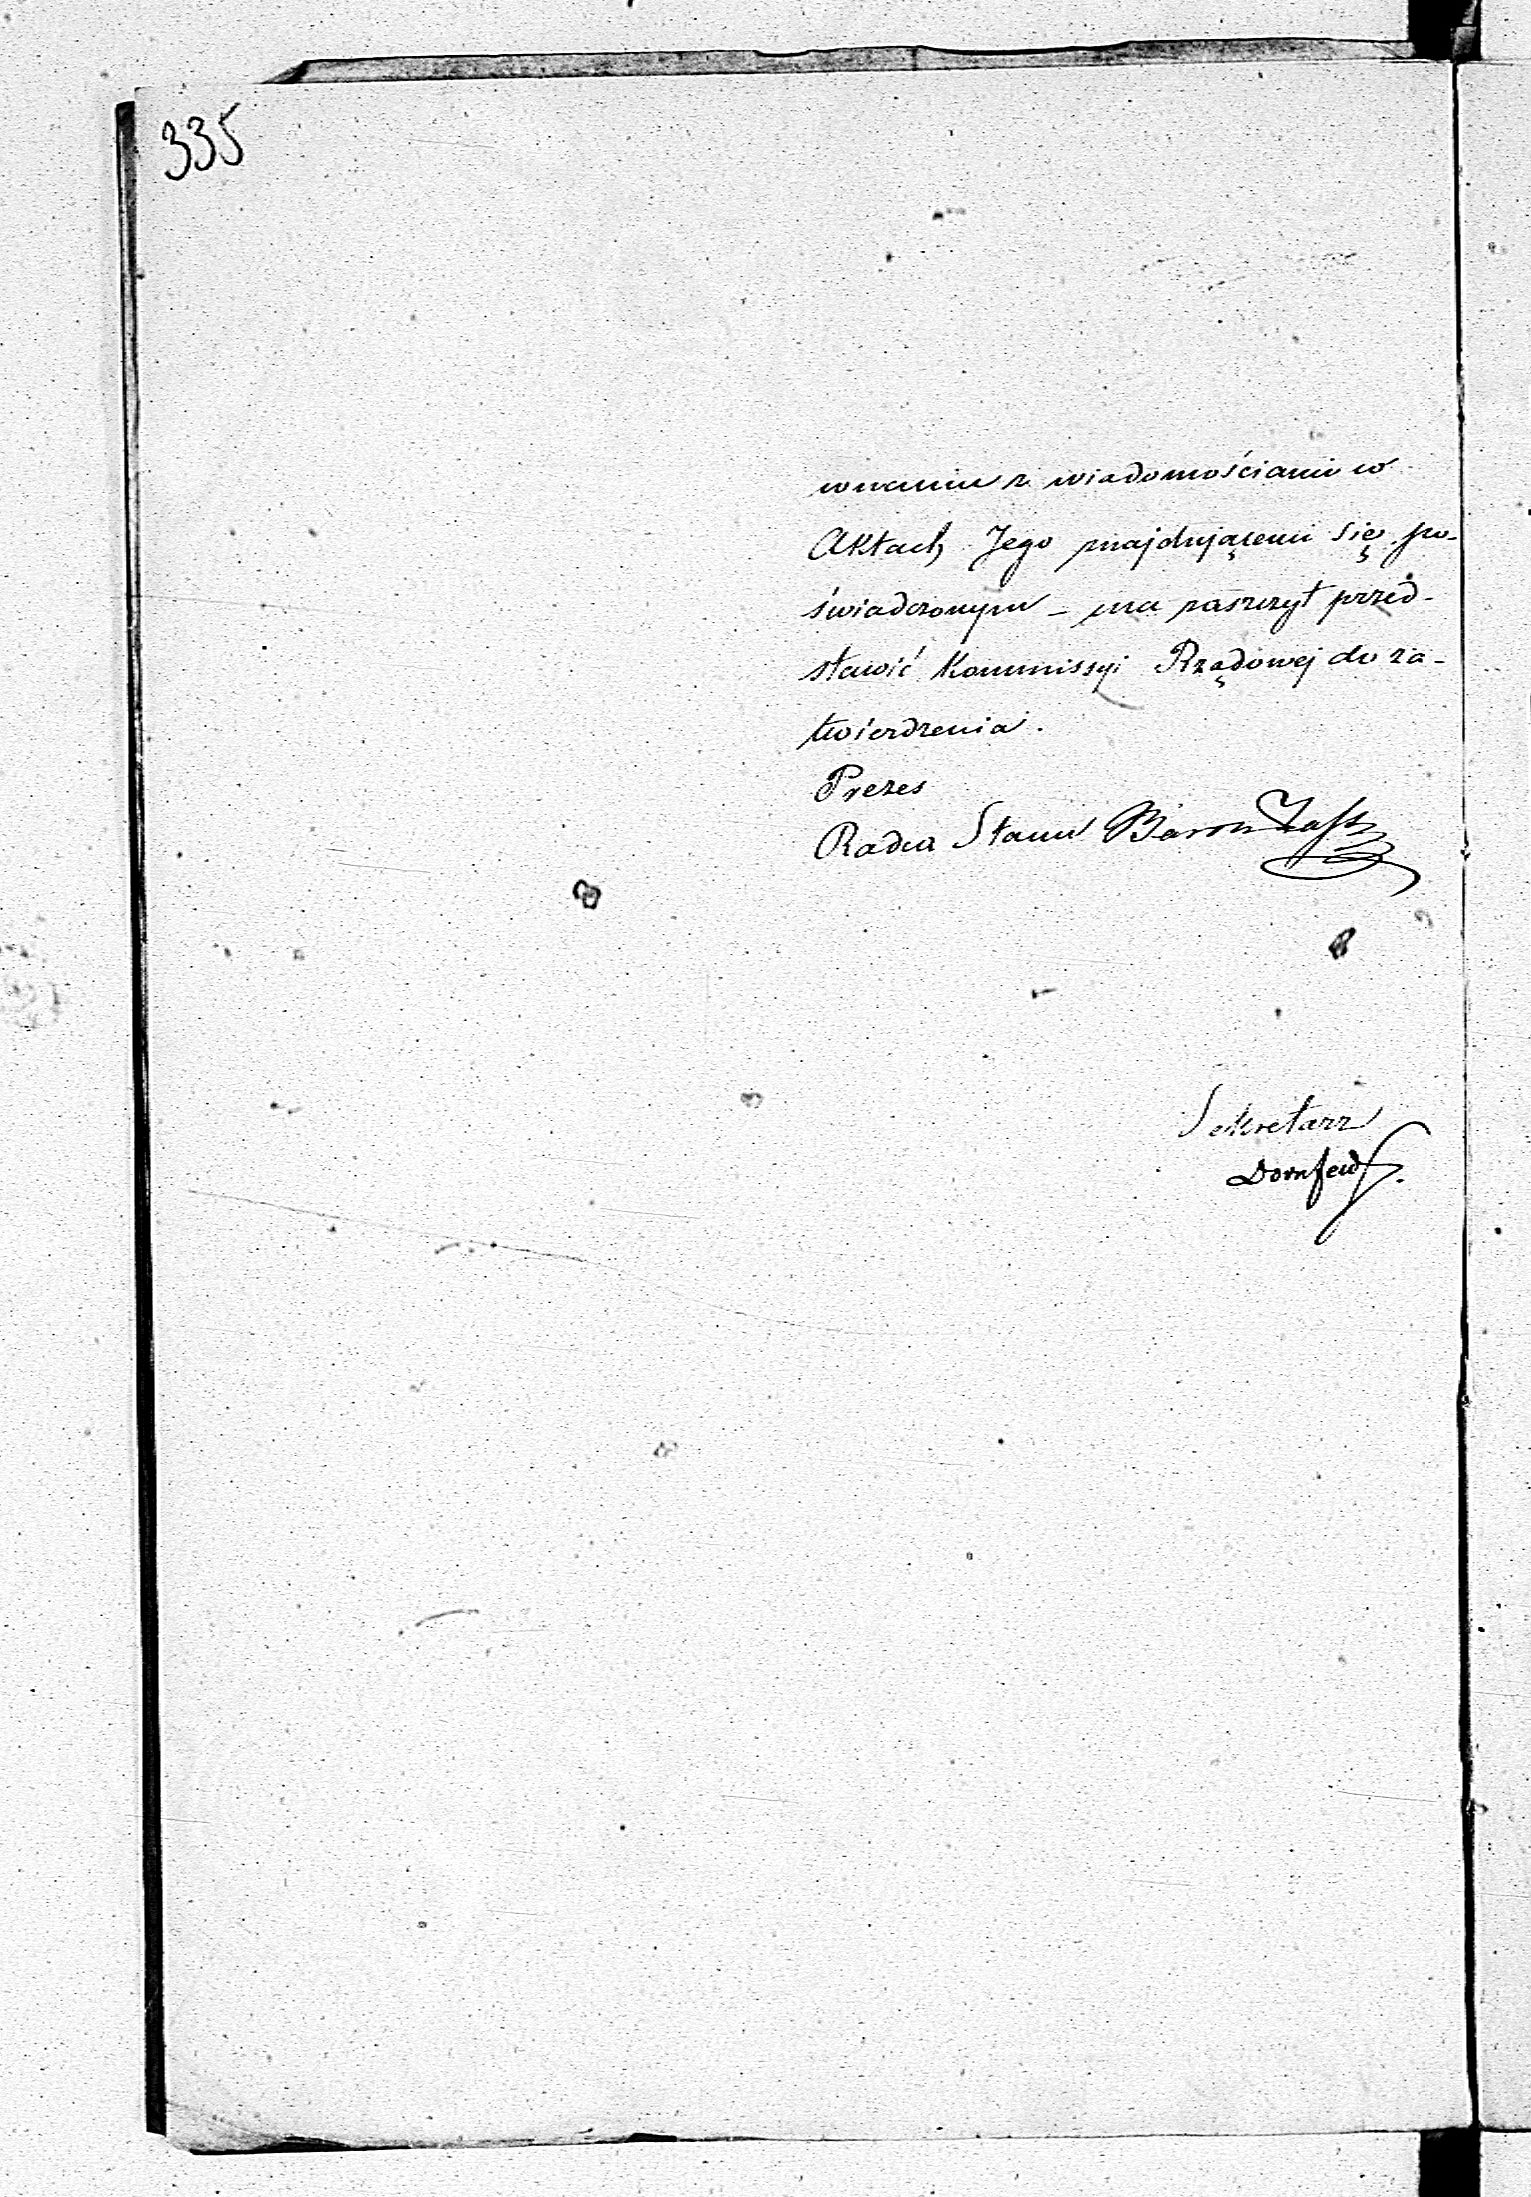 335
wnaniu z wiadomościami w
Aktach Jego znajdującemi się po-
świadczonym – ma zaszczyt przed-
stawić Kommissyi Rządowej do za-
twierdzenia.
Prezes
Radca Stanu Baron
Sekretarz
Dornfeld